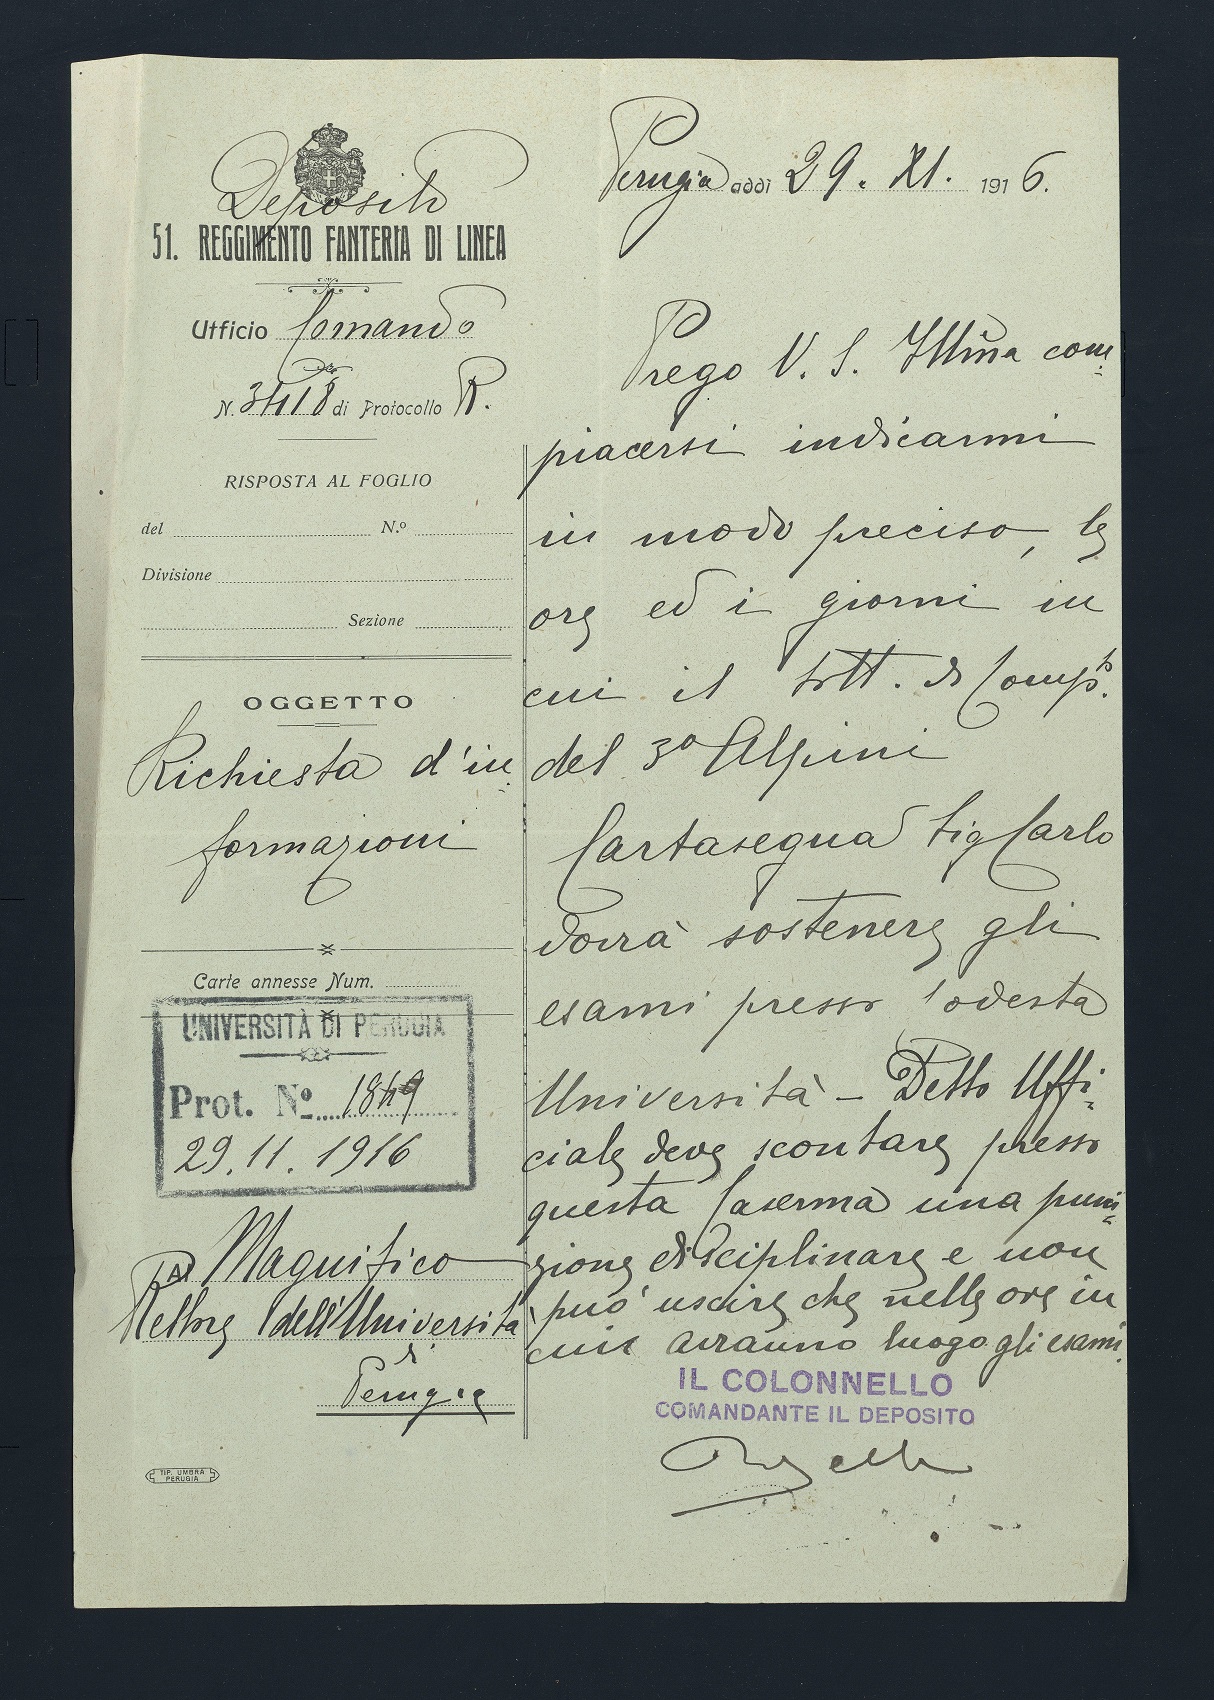 Deposito
51. REGGIMENTO FANTERIA DI LINEA
Ufficio Comando
N. 3418 di Protocollo R.
RISPOSTA AL FOGLIO
del N.º
Divisione
Sezione
OGGETTO
Richiesta d'in
formazioni
Carte annesse Num.
UNIVERSITÀ DI PERUGIA
Prot. Nº 1849
29.11.1916
Al Magnifico
Rettore dell'Università
di
Perugia
TIP. UMBRA
PERUGIA
Perugia addì 29. XI. 1916.
Prego V. S. Ill̃ma com=
piacersi indicarmi
in modo preciso, le
ore ed i giorni in
cui il sott. di Comp.to
del 3º Alpini
Cartasegna Sig Carlo
dovrà sostenere gli
esami presso Codesta
Università – Detto Uffi=
ciale deve scontare presso
questa Caserma una puni=
zione disciplinare e non
può uscire che nelle ore in
cui avranno luogo gli esami.
IL COLONNELLO
COMANDANTE IL DEPOSITO